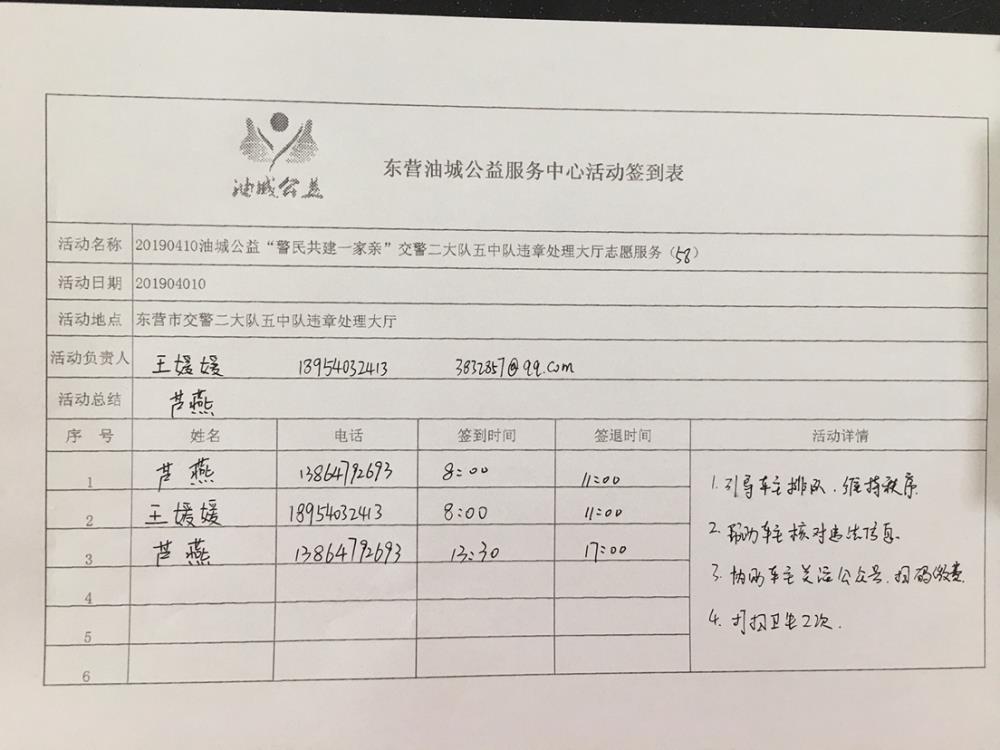 油城公益
东营油城公益服务中心活动签到表
活动名称 20190410油城公益“警民共建一家亲”交警二大队五中队违章处理大厅志愿服务（58）
活动日期 201904010
活动地点 东营市交警二大队五中队违章处理大厅
活动负责人 王媛媛 18954032413 3832857@qq.com
活动总结 芦燕
序 号 姓名 电话 签到时间 签退时间 活动详情
1 芦燕 13864792693 8:00 11:00
2 王媛媛 18954032413 8:00 11:00
3 芦燕 13864792693 13:30 17:00
4
5
6
1. 引导车主排队、维持秩序
2. 帮助车主核对违法信息
3. 协助车主关注公众号、扫码缴费
4. 打扫卫生2次.